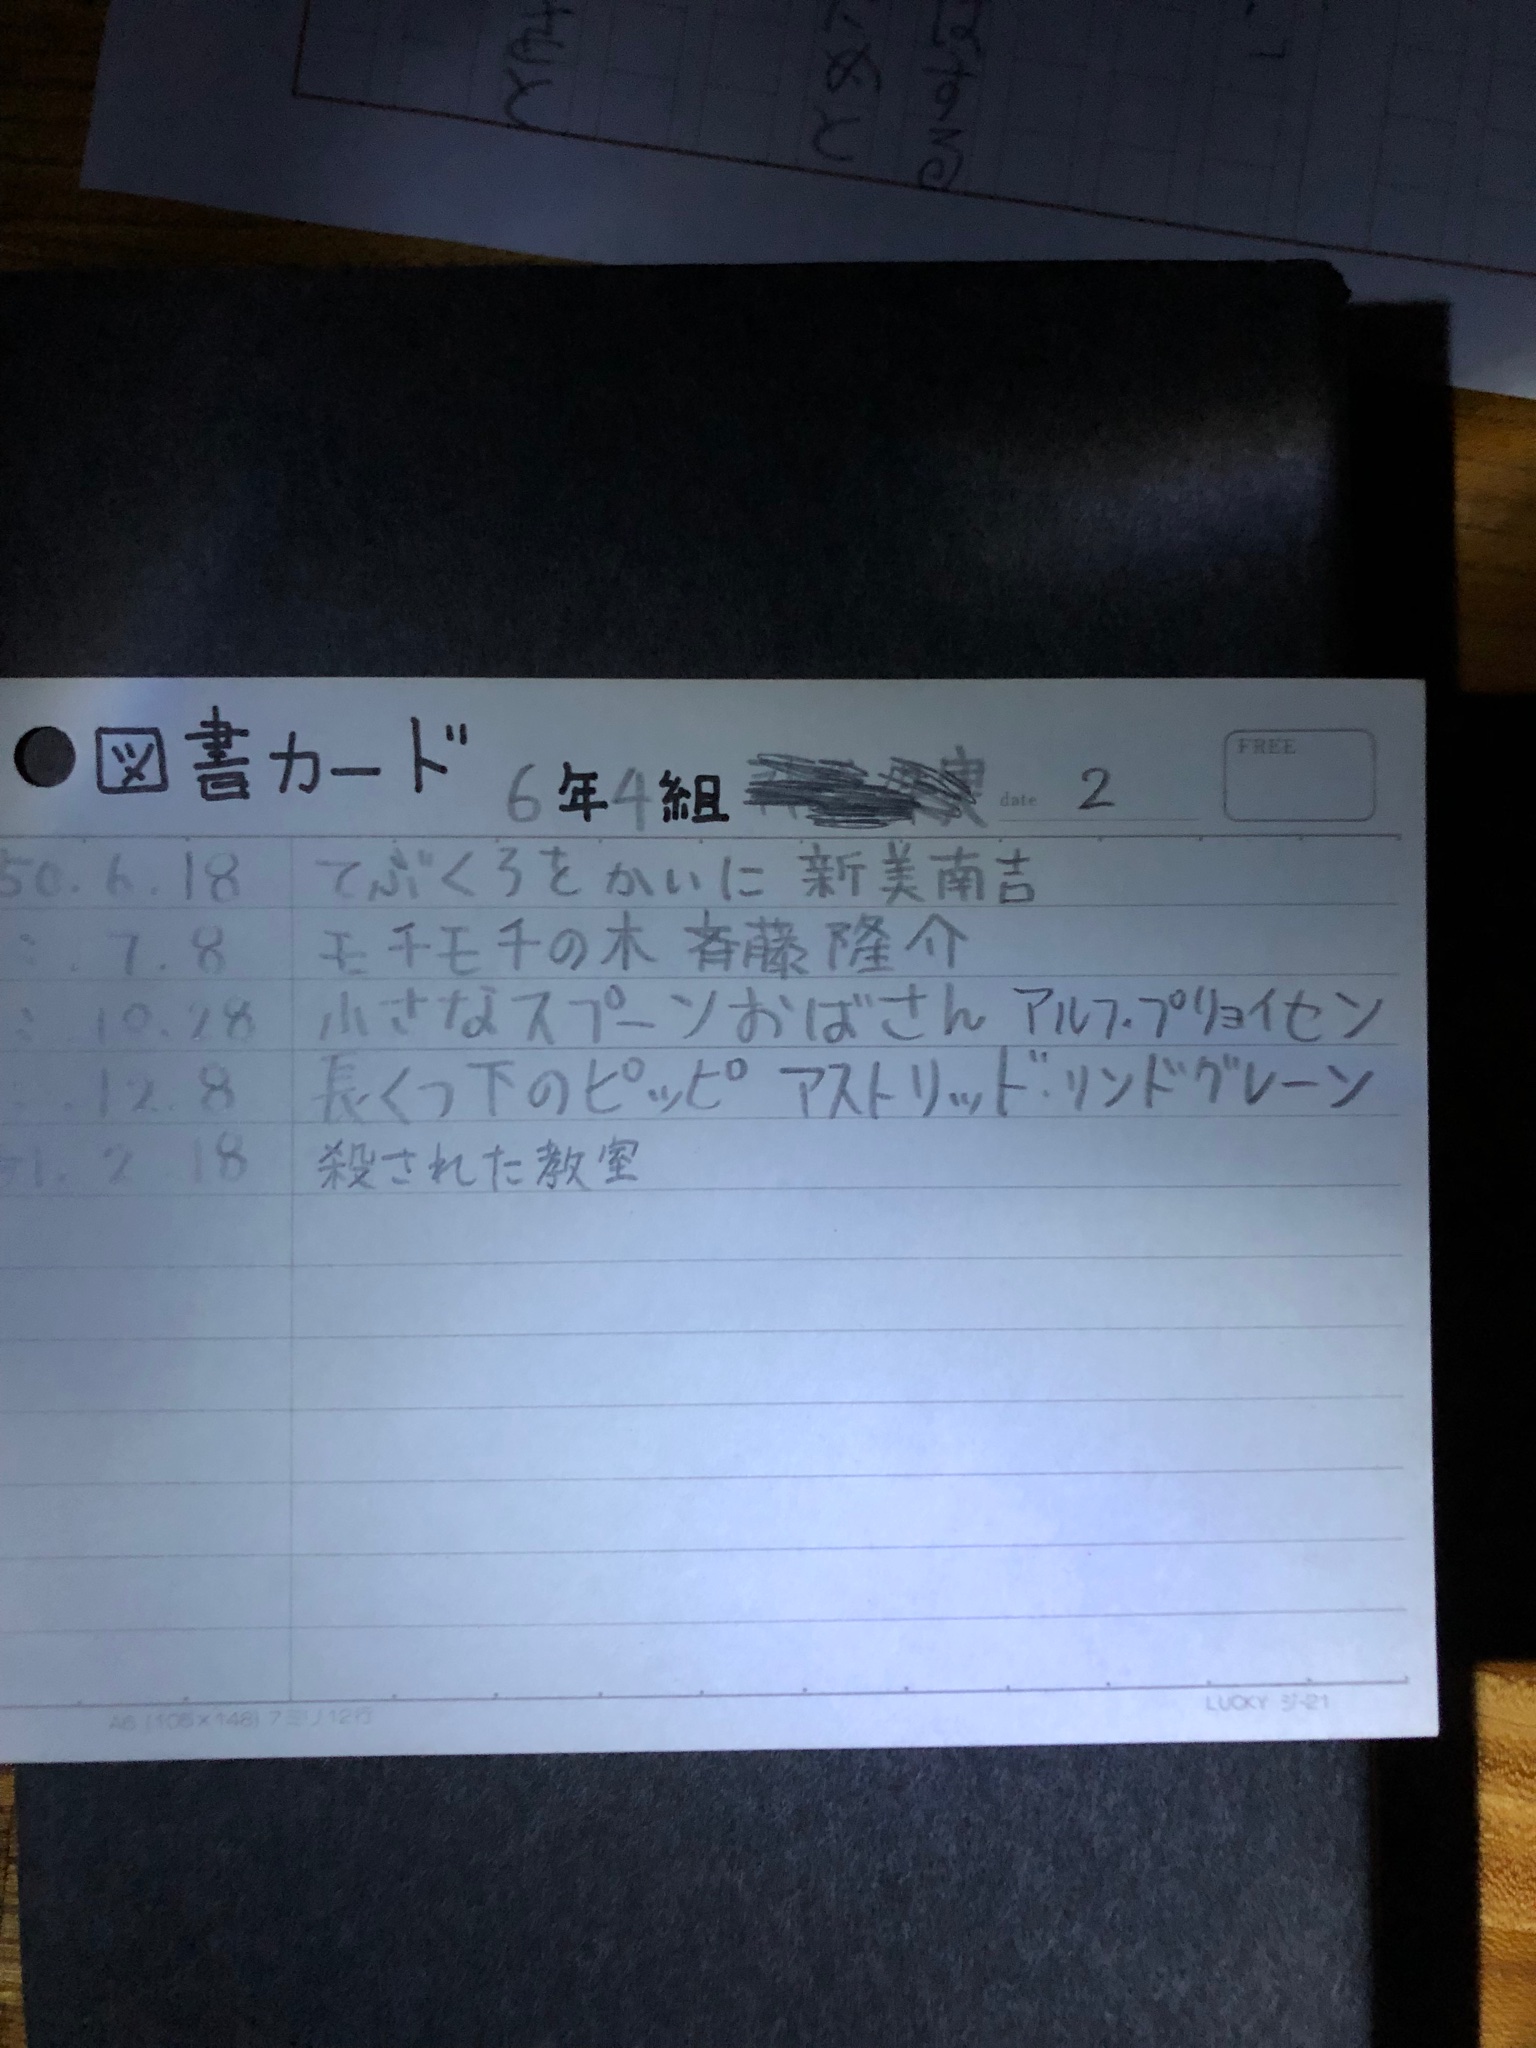 図書カード 6年4組 date 2 FREE
50.6.18 てぶくろをかいに 新美南吉
〃.7.8 モチモチの木 斉藤隆介
〃.10.28 小さなスプーンおばさん アルフ・プリョイセン
〃.12.8 長くつ下のピッピ アストリッド・リンドグレーン
51.2.18 殺された教室
A6 (105×148) 7ミリ12行
LUCKY